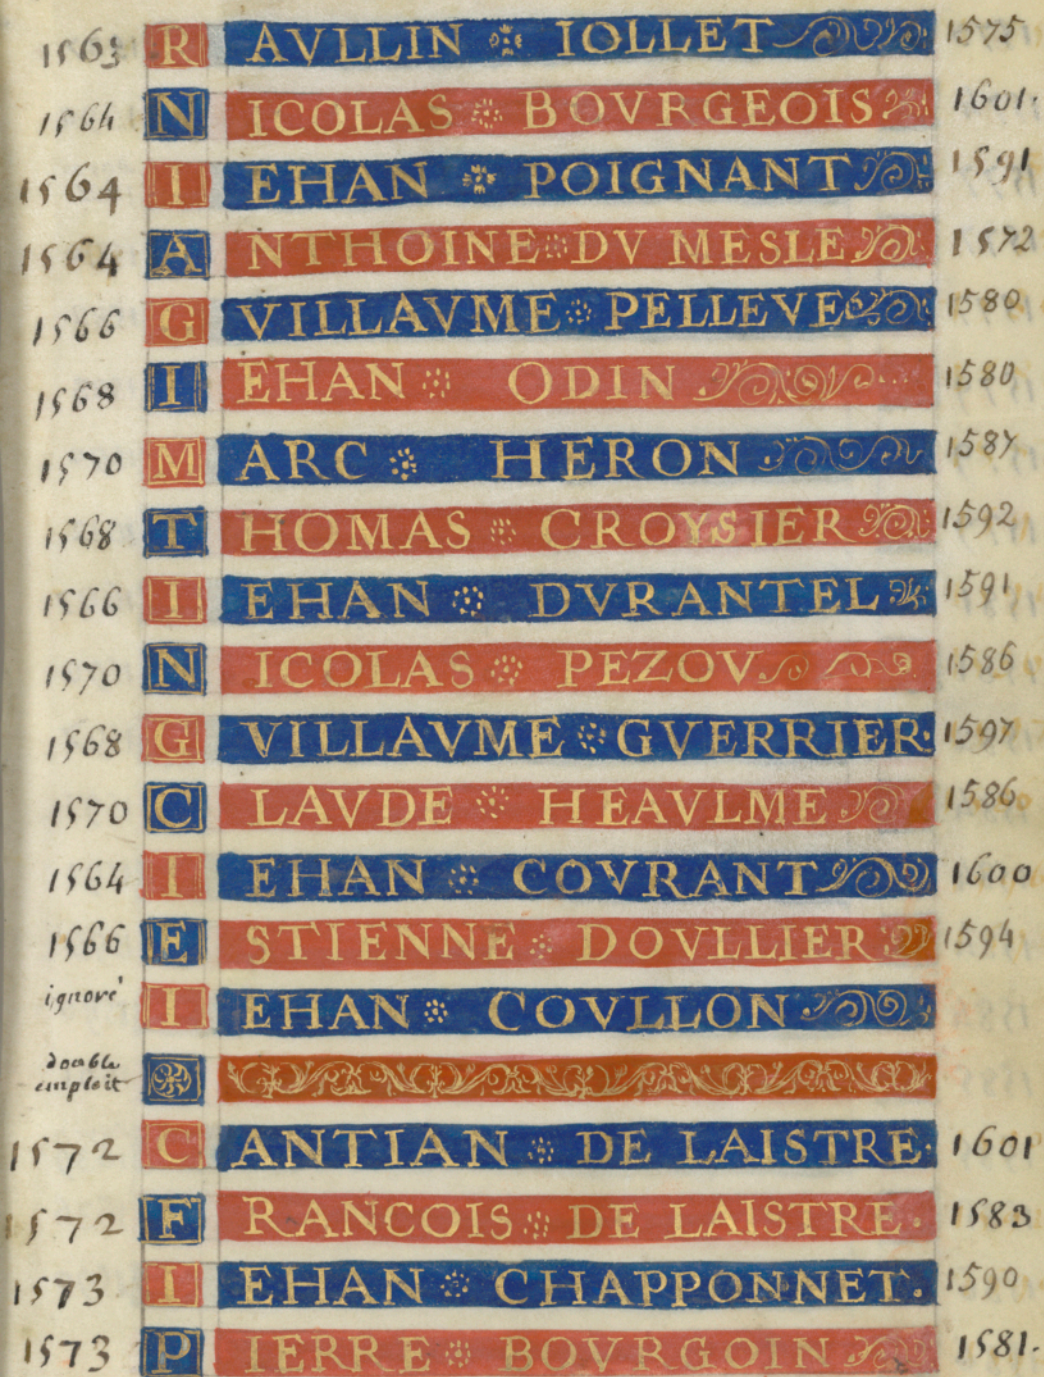 1563 RAVLLIN IOLLET 1575
1564 NICOLAS BOVRGEOIS 1601.
1564 IEHAN POIGNANT 1591
1564 ANTHOINE DV MESLE 1572
1566 GVILLAVME PELLEVE 1580
1568 IEHAN ODIN 1580
1570 MARC HERON 1587
1568 THOMAS CROYSIER 1592
1566 IEHAN DVRANTEL 1591
1570 NICOLAS PEZOV 1586
1568 GVILLAVME GVERRIER 1597
1570 CLAVDE HEAVLME 1586
1564 IEHAN COVRANT 1600
1566 ESTIENNE DOVLLIER 1594
ignoré IEHAN COVLLON
double
emploit
1572 CANTIAN DE LAISTRE 1601
1572 FRANCOIS DE LAISTRE. 1583
1573 IEHAN CHAPPONNET. 1590
1573 PIERRE BOVRGOIN 1581.